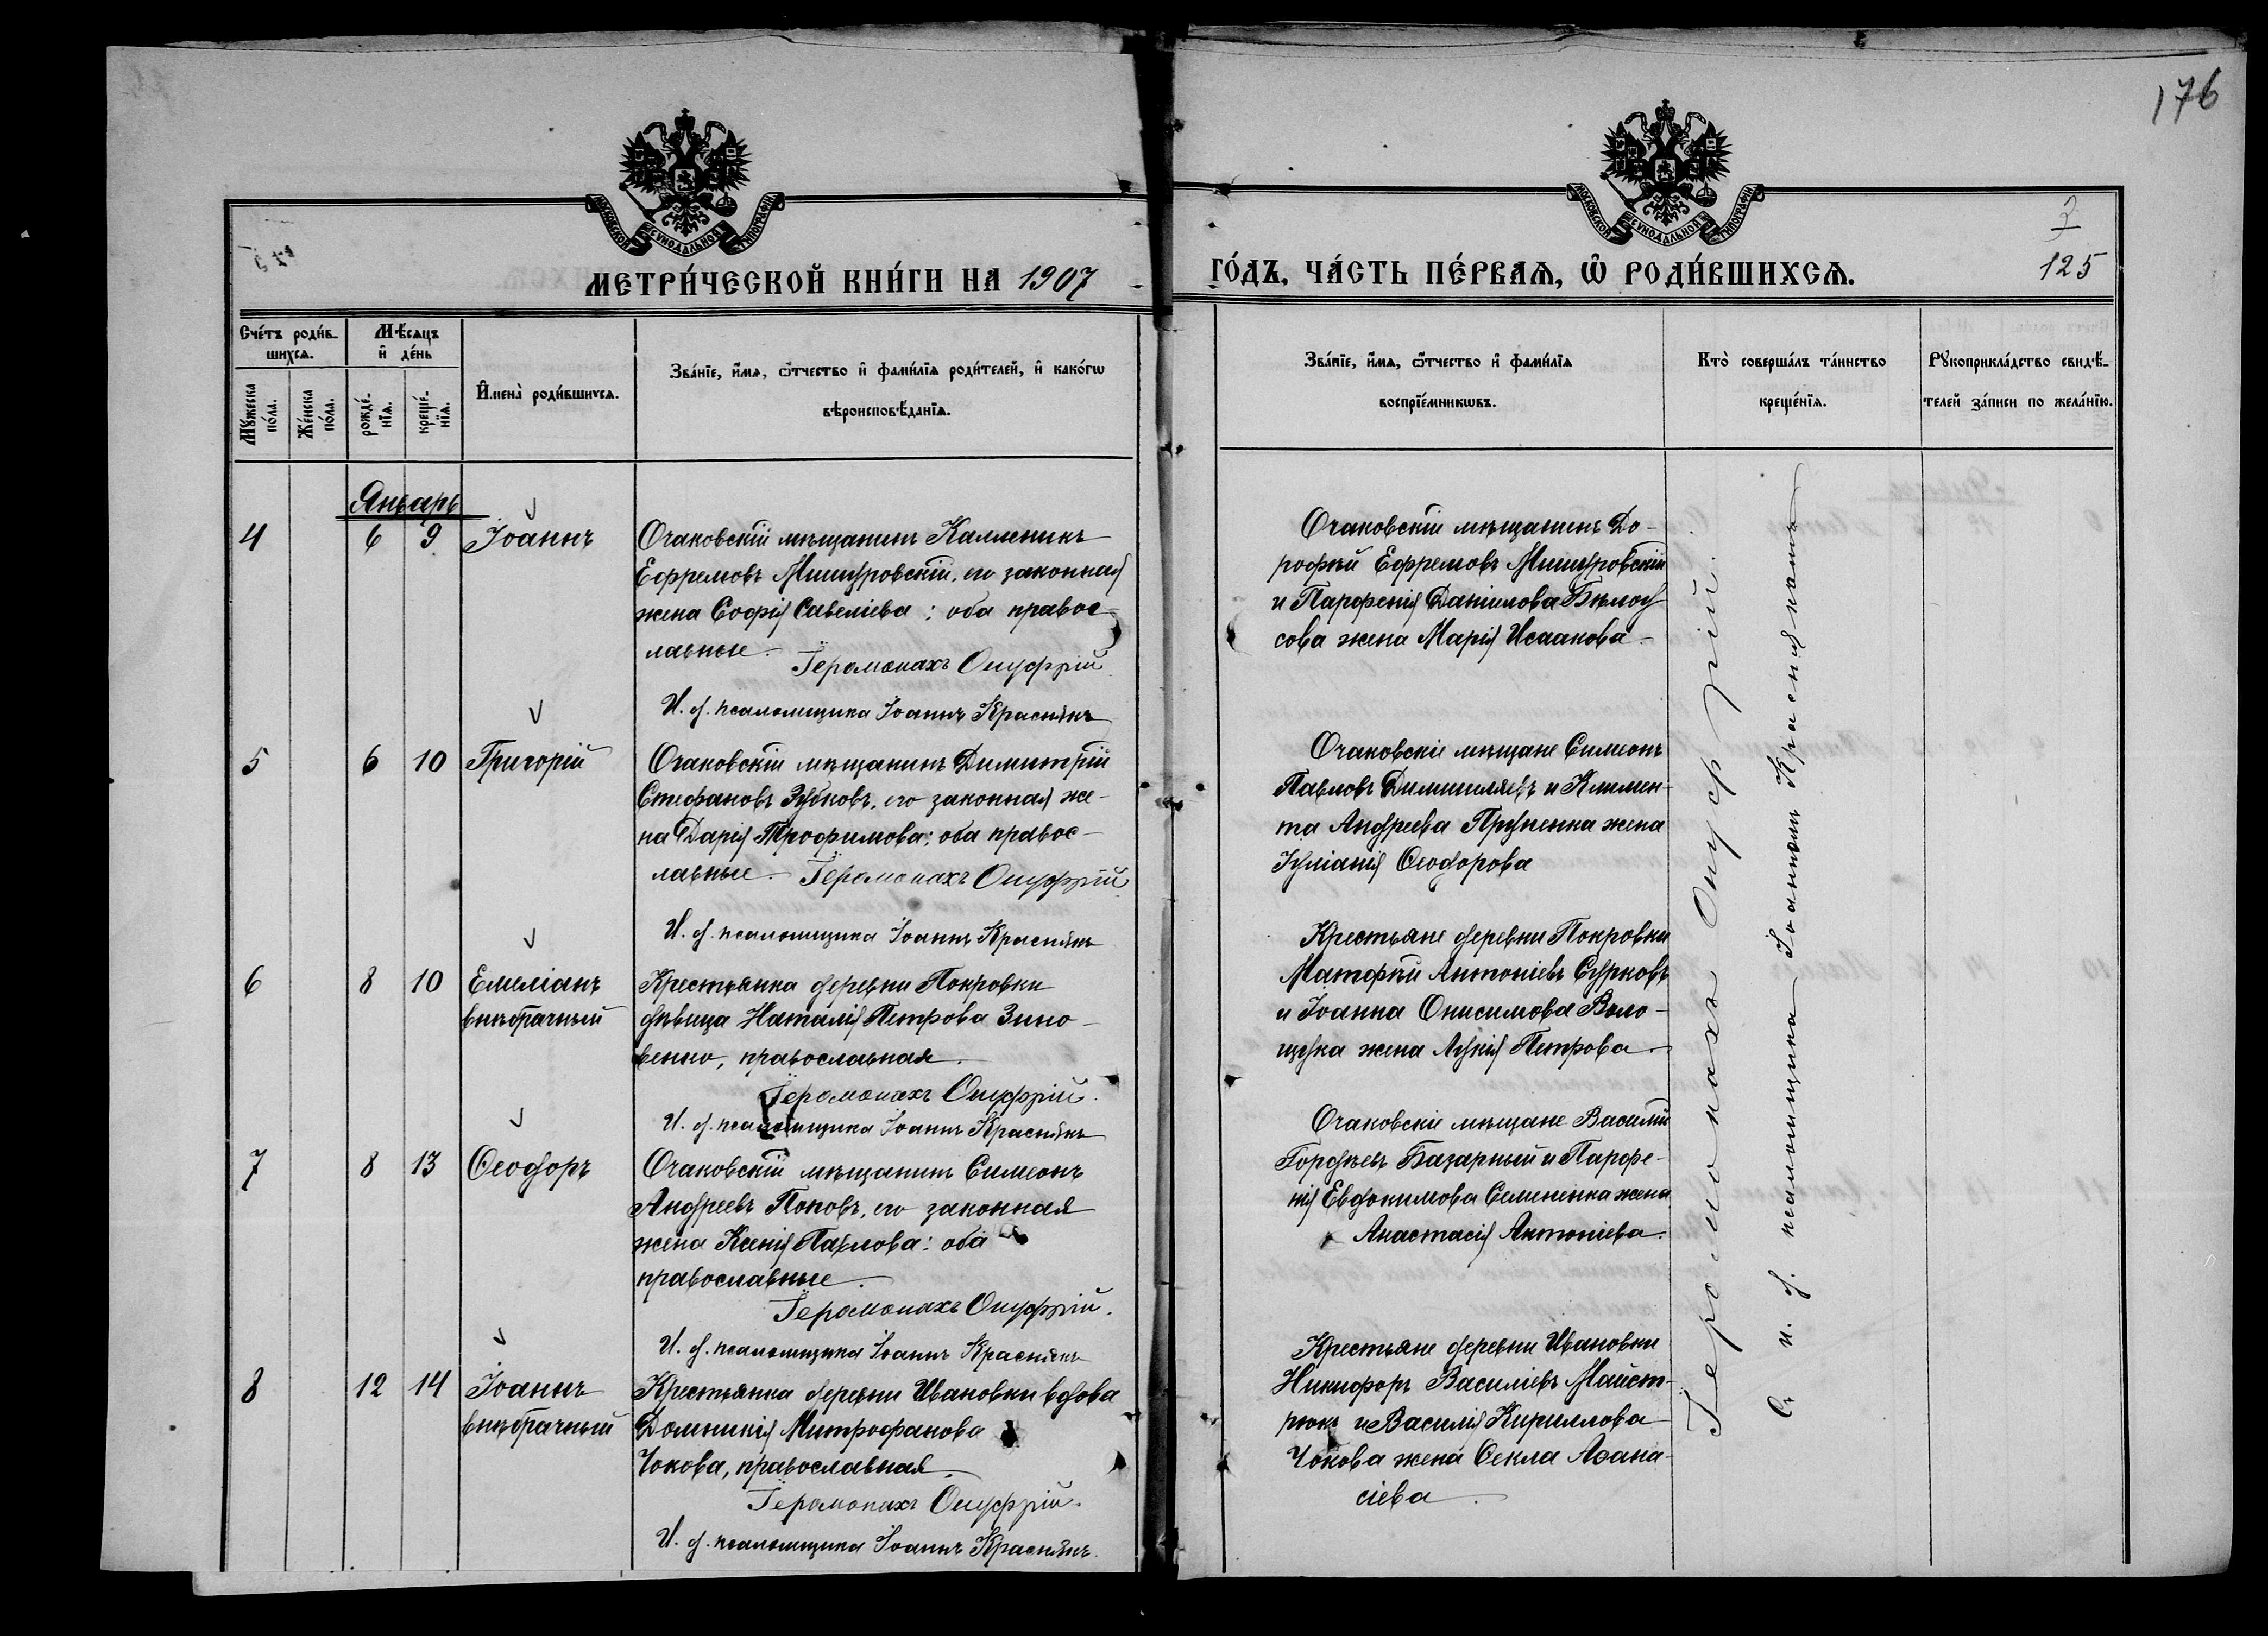 176
МОСКОВСКОЙ СУНОДАЛЬНОЙ ТИПОГРАФІИ
МОСКОВСКОЙ СУНОДАЛЬНОЙ ТИПОГРАФІИ
3
125
МЕТРИ́ЧЕСКОЙ КНИ́ГИ НА 1907
ГО́ДЪ, ЧА́СТЬ ПЕ́РВАѦ, Ѡ҆ РОДИ́ВШИХСѦ.
Сче́тъ роди́в-
шихсѧ.
Мꙋ́жеска по́ла.
Же́нска по́ла.
Мѣ́сѧцъ
и҆ де́нь
рожде́-
нїѧ.
креще́-
нїѧ.
И҆мена̀ роди́вшихсѧ.
Зва́нїе, и҆́мѧ, ѻ҆́тчество и҆ фами́лїѧ роди́телей, и҆ како́гѡ
вѣроисповѣ́данїѧ.
Зва́нїе, и҆́мѧ, ѻ҆́тчество и҆ фами́лїѧ
воспрїе́мникѡвъ.
Кто̀ соверша́лъ та́инство
креще́нїѧ.
Рꙋкоприкла́дство свидѣ́-
телей за́писи по жела́нїю.
Январь
4 6 9 Іоаннъ
Очаковскій мѣщанинъ Каллиникъ
Ефремовъ Мишуровскій, его законная
жена Софія Савеліева; оба правос-
лавные.
Іеромонахъ Онуфрій.
И. д. псаломщика Іоаннъ Краснякъ
Очаковскій мѣщанинъ До-
рофей Ефремовъ Мишуровскій
и Парфенія Даніилова Бѣлоу
сова жена Марія Исаакова.
5 6 10 Григорій
Очаковскій мѣщанинъ Димитрій
Стефановъ Зубковъ, его законная же-
на Дарія Трофимова; оба правос-
лавные. Іеромонахъ Онуфрій
И. д. псаломщика Іоаннъ Краснякъ
Очаковскіе мѣщане Симеонъ
Павловъ и Климен-
та Андреева жена
Іуліанія Ѳеодорова
6 8 10 Емеліанъ
внѣбрачный
Крестьянка деревни Покровки
дѣвица Наталія Петрова Зино-
венко, православная.
Іеромонахъ Онуфрій.
И. д. псаломщика Іоаннъ Краснякъ
Крестьяне деревни Покровки
Матфей Антоніевъ Сурковъ
и Іоанна Онисимова Воло-
щука жена Лукія Петрова.
7 8 13 Ѳеодоръ
Очаковскій мѣщанинъ Симеонъ
Андреевъ Поповъ, его законная
жена Ксенія Павлова: оба
православные.
Іеромонахъ Онуфрій.
И. д. псаломщика Іоаннъ Краснякъ
Очаковскіе мѣщане Василій
Гордѣевъ Базарный и Парфе-
нія Евдокимова Семененка жена
Анастасія Антоніева.
8 12 14 Іоаннъ
внѣбрачный
Крестьянка деревни Ивановки вдова
Домникія Митрофанова
Чокова, православная.
Іеромонахъ Онуфрій.
И. д. псаломщика Іоаннъ Краснякъ.
Крестьяне деревни Ивановки
Никифоръ Василіевъ Майст-
рюкъ и Василія Кириллова
Чокова жена Ѳекла Аѳана-
сіева.
Іеромонахъ Онуфрій.
Съ и. д. псаломщика Іоанномъ Краснякомъ